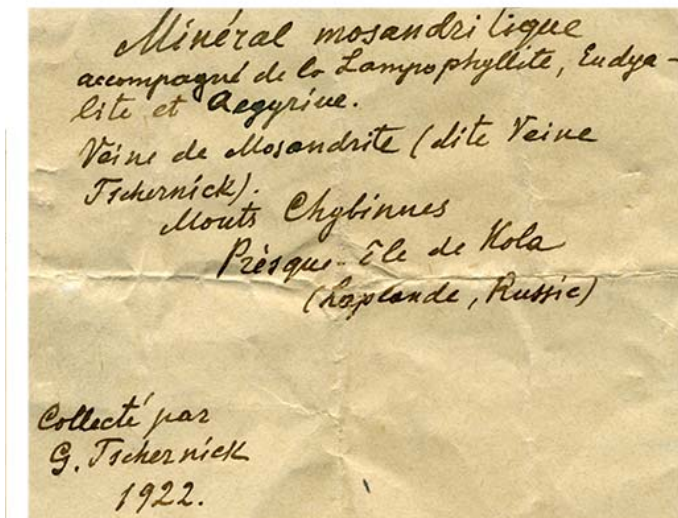 Minéral mosandritique
accompagné de la Lampophyllite, Eudya-
lite et Aegyrine.
Veine de Mosandrite (dite Veine
Tschernick).
Monts Chybinnes
Prèsque-île de Kola
(Laplande, Russie)
Collecté par
G. Tschernick
1922.